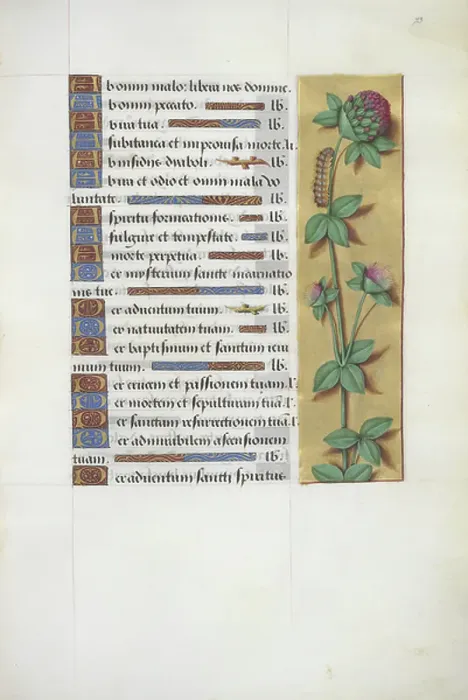 Ab omni malo: libera nos domine.
Ab omni peccato. lb.
Ab ira tua. lb.
A subitanea et improuisa morte. li.
Ab insidiis diaboli. lb.
Ab ira et odio et omni mala vo
luntate. lb.
A spiritu fornicationis. lb.
A fulgure et tempestate. lb.
A morte perpetua. lb.
Per mysterium sancte incarnatio
nis tue. lb.
Per aduentum tuum. lb.
Per natiuitatem tuam. lb.
Per baptismum et sanctum ieiu
nium tuum. lb.
Per crucem et passionem tuam. l.
Per mortem et sepulturam tuã. l.
Per sanctam resurrectionem tuã. l.
Per admirabilem ascensionem
tuam. lb.
Per aduentum sancti spiritus